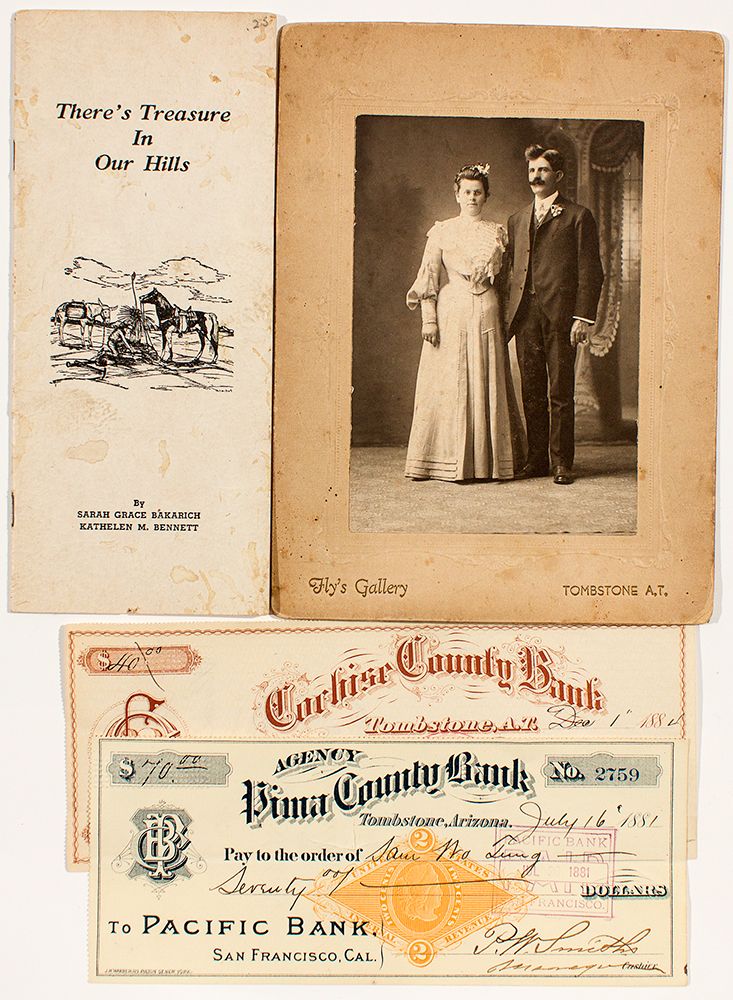 .25
There's Treasure
In
Our Hills
By
SARAH GRACE BAKARICH
KATHELEN M. BENNETT
Fly's Gallery
TOMBSTONE A.T.
$40.00
Cochise County Bank
Tombstone, A.T. Dec 1" 1884
$70.00
AGENCY
Pima County Bank
No. 2759
Tombstone, Arizona. July 16" 1881
Pay to the order of Sam Wo Tung
Seventy 00/ DOLLARS
2
2
PACIFIC BANK
PAID
1881
FRANCISCO.
TO PACIFIC BANK,
SAN FRANCISCO, CAL.
P.W. Smith
Manager Cashier